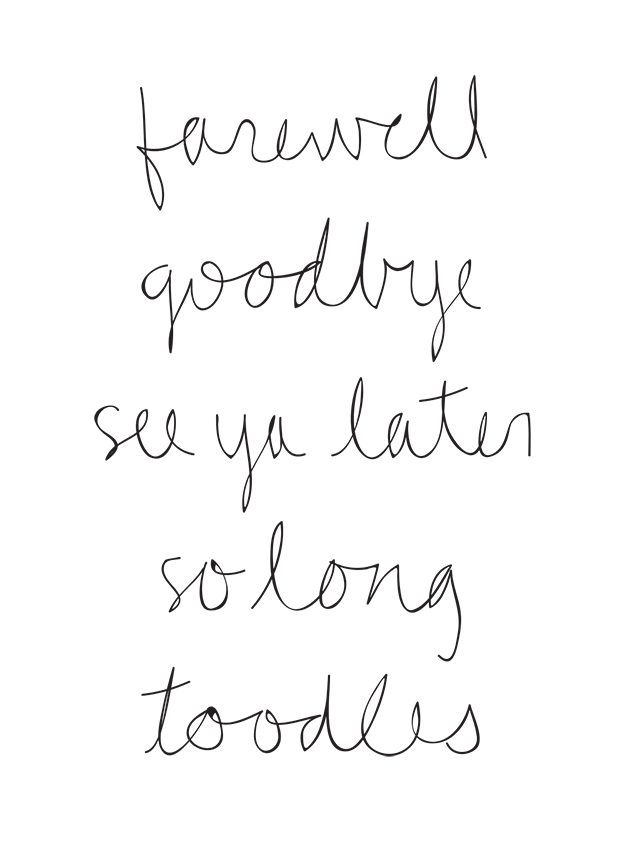 farewell
goodbye
see ya later
so long
toodles